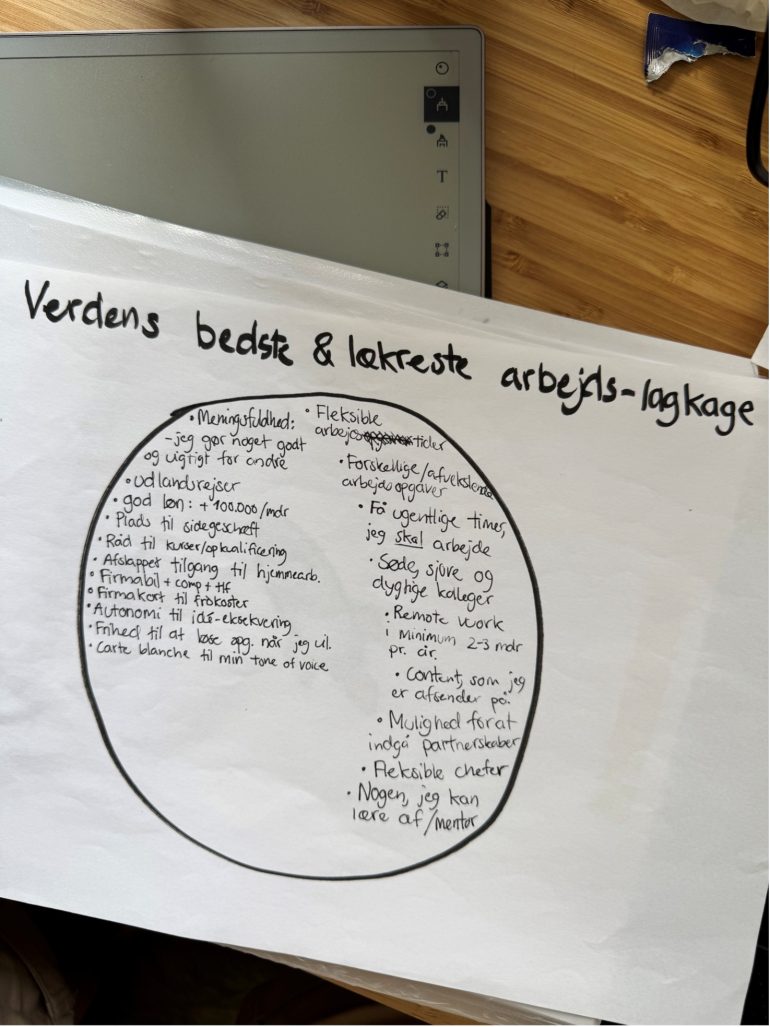 T
Verdens bedste & lækreste arbejds-lagkage
• Meningsfuldhed:
- jeg gør noget godt
og vigtigt for andre
• Udlandsrejser
• god løn: + 100.000/mdr
• Plads til sidegeschæft
• Råd til kurser/opkvalificering
• Afslappet tilgang til hjemmearb.
• Firmabil + comp + tlf
• Firmakort til frokoster
• Autonomi til idé-eksekvering
• Frihed til at løse opg. når jeg vil.
• Carte blanche til min tone of voice
• Fleksible
arbejdstider
• Forskellige/afvekslende
arbejdsopgaver
• Få ugentlige timer,
jeg skal arbejde
• Søde, sjove og
dygtige kolleger
• Remote work
i minimum 2-3 mdr
pr. år.
• Content, som jeg
er afsender på.
• Mulighed for at
indgå partnerskaber
• Fleksible chefer
• Nogen, jeg kan
lære af/mentor